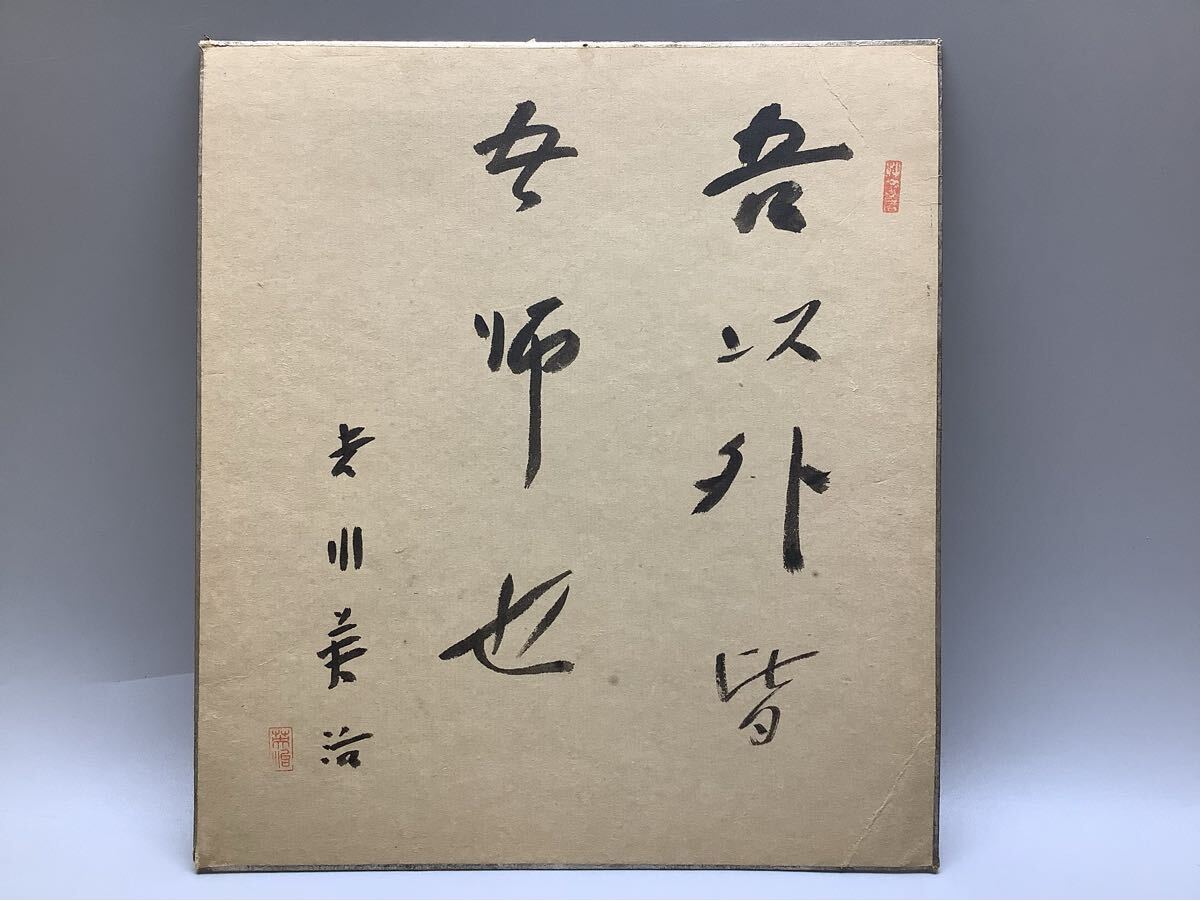 吾以外皆
吾師也
吉川英治
英治